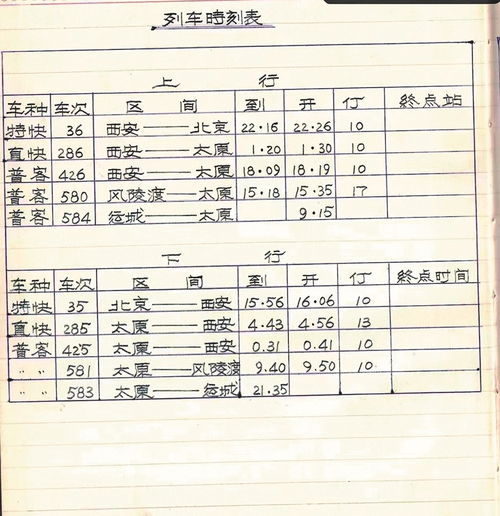 列车時刻表
上 行
车种 车次 区 间 到 开 仃 終点站
特快 36 西安——北京 22·16 22·26 10
直快 286 西安——太原 1·20 1·30 10
普客 426 西安——太原 18·09 18·19 10
普客 580 风陵渡——太原 15·18 15·35 17
普客 584 运城——太原 9·15
下 行
车种 车次 区 间 到 开 仃 終点时间
特快 35 北京——西安 15·56 16·06 10
直快 285 太原——西安 4·43 4·56 13
普客 425 太原——西安 0.31 0.41 10
〃 〃 581 太原——风陵渡 9.40 9.50 10
〃 〃 583 太原——运城 21.35